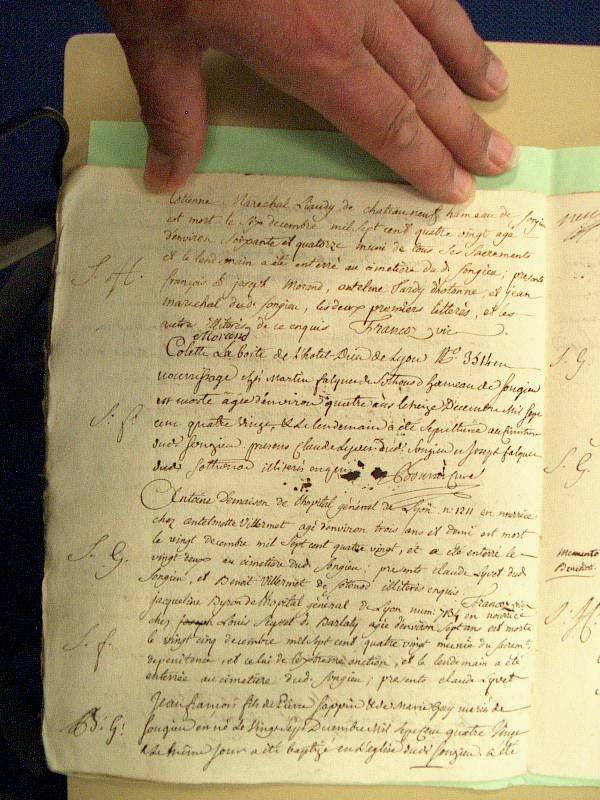 Etienne Marechal Liaudy de chateauneuf hameau de Songieu
est mort le decembre mil Sept cent quatre vingt agé
d'environ Soixante et quatorze muni de tous Ses Sacrements
et le lendemain a été enterré au cimetiere dud. Songieu, presents
françois et joseph Morand, antelme Tardy d'hotonne, et jean
marechal dud. Songieu, les deux premiers litterés, et les
autre illiterés de ce enquis Morand Francoz vic
S. H.
Colette La boite de l'hotel-Dieu de Lyon No. 3514 en
nourrissage chés Martin falque de Sothonod hameau de Songieu
est morte agée d'environ quatre ans le treize Decembre Mil Sept
cent quatre vingt, & Le lendemain a été Sepulturée au Cimetiere
dud. Songieu, presens Claude Lyvet dud. Songieu et Joseph falque
dud. Sothonod illiterés enquis Curé
S. f.
Antoine Demaison de l'hopital général de Lyon n. 1211 en nourrice
chez antelmotte Villermet agé d'environ trois ans et demi est mort
le vingt decembre mil Sept cent quatre vingt, et a été enterré le
vingt deux au cimetiere dud. Songieu; presents claude Lyvet dud.
Songieu, et Benoit Villermet de Sotonod illiterés enquis. Francoz vic
S. G.
jacqueline Byron de l'hopital général de Lyon num: 734 en nourrice
chez Louis Seyvet de Barlaty agée d'environ Sept ans est morte
le vingt cinq decembre mil Sept cent quatre vingt munie du Sacrement
de penitence, et celui de l'extreme onction, et le lendemain a été
enterrée au cimetiere dud. Songieu; presents claude Lyvet
S. f.
Jean francois fils de Pierre Sappin & de Marie Gay mariés de
Songieu est né le Vingt Sept Decembre Mil Sept Cent quatre Vingt
& Le même jour a été baptizé en l'eglise dud. Songieu. a été
B. G.
S. G.
S. G.
memento
S. H.